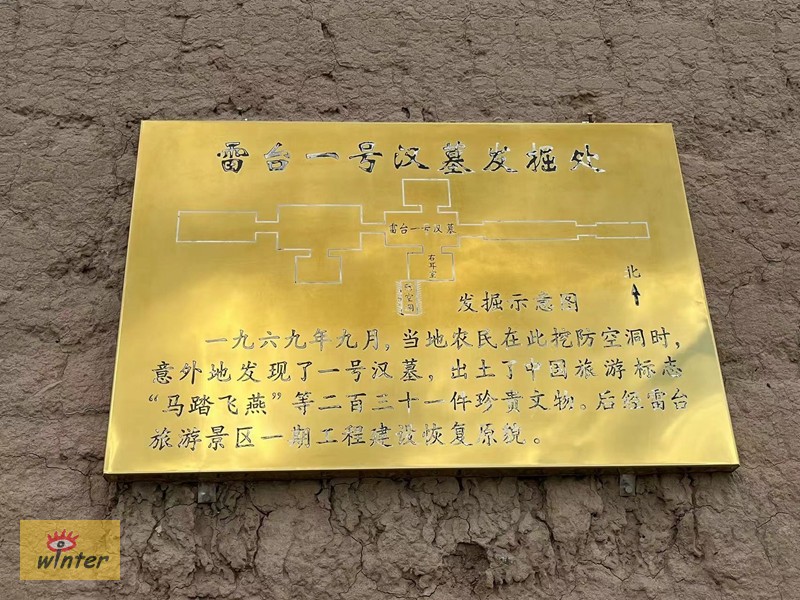 雷台一号汉墓发掘处
雷台一号汉墓
右耳室
防空洞
北
发掘示意图
一九六九年九月，当地农民在此挖防空洞时，
意外地发现了一号汉墓，出土了中国旅游标志
“马踏飞燕”等二百三十一件珍贵文物。后经雷台
旅游景区一期工程建设恢复原貌。
winter